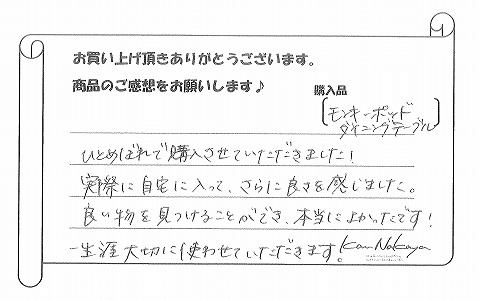 お買い上げ頂きありがとうございます。
商品のご感想をお願いします♪
購入品
モンキーポッド
ダイニングテーブル
ひとめぼれで購入させていただきました!
実際に自宅に入って、さらに良さを感じました。
良い物を見つけることができ、本当によかったです!
一生涯大切に使わせていただきます!